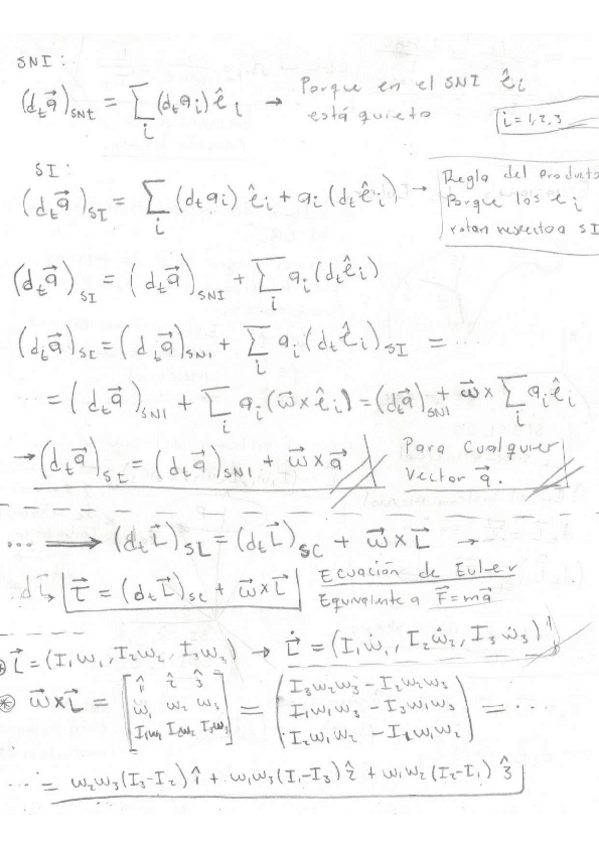 SNI:
(d_t a⃗)_SNI = ∑_i (d_t a_i) ê_i → Porque en el SNI ê_i
está quieto
i = 1,2,3
SI:
(d_t a⃗)_SI = ∑_i (d_t a_i) ê_i + a_i (d_t ê_i) → Regla del Producto
Porque los e_i
rotan respecto a SI
(d_t a⃗)_SI = (d_t a⃗)_SNI + ∑_i a_i (d_t ê_i)
(d_t a⃗)_SI = (d_t a⃗)_SNI + ∑_i a_i (d_t ê_i)_SI = ...
= (d_t a⃗)_SNI + ∑_i a_i (ω⃗ x ê_i) = (d_t a⃗)_SNI + ω⃗ x ∑_i a_i ê_i
→ (d_t a⃗)_SI = (d_t a⃗)_SNI + ω⃗ x a⃗ Para cualquier
vector a⃗.
... ⟹ (d_t L⃗)_SL = (d_t L⃗)_SC + ω⃗ x L⃗ →
τ⃗ = (d_t L⃗)_SC + ω⃗ x L⃗ Ecuación de Euler
Equivalente a F⃗ = ma⃗
⊛ L⃗ = (I₁ω₁, I₂ω₂, I₃ω₃) → L⃗̇ = (I₁ω̇₁, I₂ω̇₂, I₃ω̇₃)
⊛ ω⃗ x L⃗ = [1̂ 2̂ 3̂ ; ω₁ ω₂ ω₃ ; I₁ω₁ I₂ω₂ I₃ω₃] = (I₃ω₂ω₃ - I₂ω₂ω₃ ; I₁ω₁ω₃ - I₃ω₁ω₃ ; I₂ω₁ω₂ - I₁ω₁ω₂) = ...
... = ω₂ω₃(I₃-I₂) 1̂ + ω₁ω₃(I₁-I₃) 2̂ + ω₁ω₂(I₂-I₁) 3̂